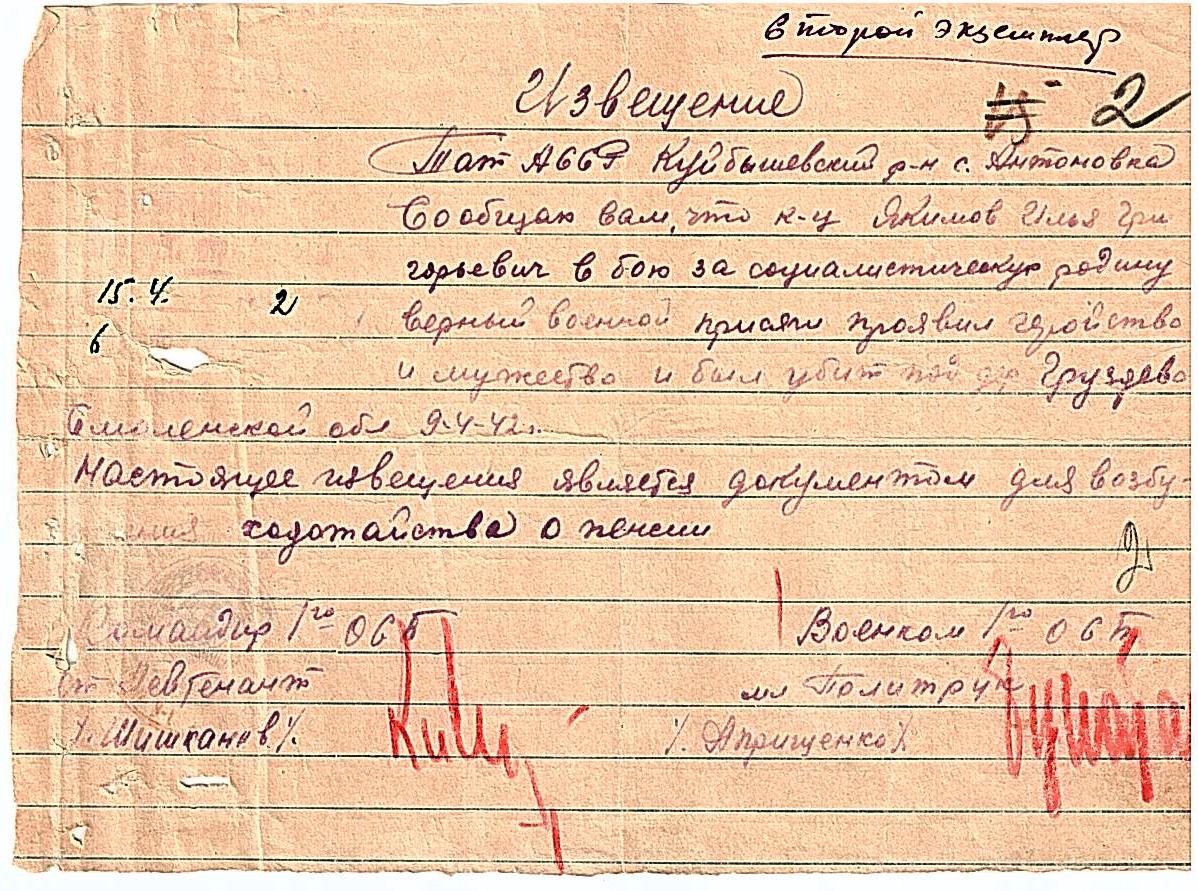 второй экземпляр
Извещение
2
Тат АССР Куйбышевский р-н с. Антоновка
Сообщаю вам, что к-ц Якимов Илья Гри
горьевич в бою за социалистическую родину
15. 4. 2
верный военной присяги проявил геройство
6
и мужество и был убит под дер Груздево
Смоленской обл 9-4-42г.
Настоящее извещения является документом для возбу-
ения ходотайства о пенсии
2
Командир 1го ОСБ Военком 1го ОСБ
ст Левтенант мл Политрук
/. Шишканов /. /. Априщенко /